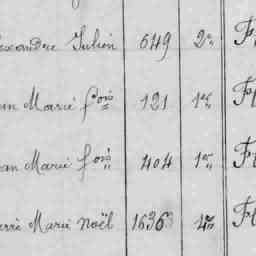 exandre Julien 649 2e F
an Marie fois 121 1er F
an Marie fois 404 1er F
erre Marie Noël 1636 F